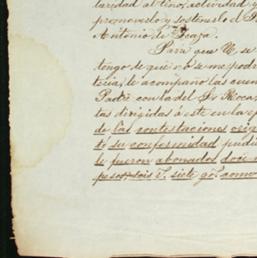 laridad al tino, actividad y
promoverlo y sostenerlo el S
Antonio de Icaza.
Para que U. se
tengo de que no se me poda
tecia, le acompaño las cuen
Padre con la del Sr Roca,
tas dirigidas á este en la ep
de las contestaciones orig
té su conformidad pudi
le fueron abonados doce m
pesos seis r.s siete g.s como